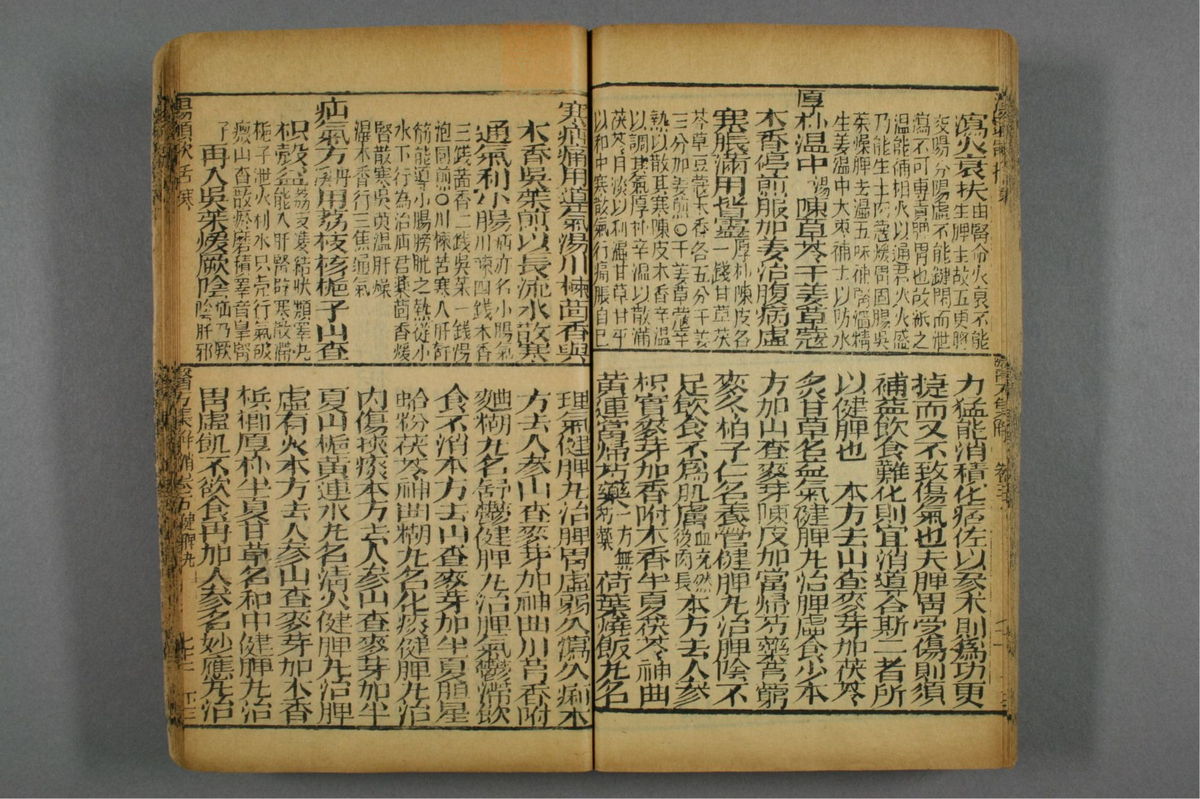 瀉火衰扶由腎命火衰不能生脾土故五更將
交陽分陽虛不能鍵閉而泄
瀉不可專責脾胃也故紙之
溫能補相火以通君火火盛
乃能生土肉蔻煖胃固腸吳
茱燥脾去濕五味補腎澀精
生姜溫中大棗補土以防水
厚朴溫中湯陳草苓干姜草蔻
木香停煎服加姜治腹病虛
寒脹滿用皆靈厚朴陳皮各一錢甘草茯
苓草豆蔻木香各五分干姜
三分加姜煎〇干姜草蔻辛
熱以散其寒陳皮木香辛溫
以調其氣厚朴辛溫以散滿
茯苓甘淡以利濕甘草甘平
以和中寒散氣行痛脹自已
寒疝痛用導氣湯川楝茴香與
木香吳茱煎以長流水散寒
通氣利小腸疝亦名小腸氣川楝四錢木香
三錢茴香二錢吳茱一錢湯
泡同煎〇川楝苦寒入肝舒
筋能導小腸膀胱之熱從小
水下行為治疝君藥茴香煖
腎散寒吳茰溫肝燥
濕木香行三焦通氣
疝氣方用荔枝核梔子山查
枳殼益荔枝雙結狀類睪丸能入肝腎辟寒散滯
梔子泄火利水只壳行氣破
癥山查散瘀磨積睪音皐腎
子再入吳茱煖厥陰疝乃厥陰肝邪
力猛能消積化痞佐以參朮則爲功更
捷而又不致傷氣也夫脾胃受傷則須
補益飲食難化則宜消導合斯二者所
以健脾也　本方去山查麥芽加茯苓
炙甘草名益氣健脾丸治脾虛食少本
方加山查麥芽陳皮加當歸芍藥芎藭
麥冬柏子仁名養營健脾丸治脾陰不
足飲食不爲肌膚血充然後肉長本方去人參
枳實麥芽加香附木香半夏茯苓神曲
黄連當歸芍藥一方無芍藥荷葉燒飯丸名
理氣健脾丸治脾胃虛弱久瀉久痢本
方去人參山查麥芽加神曲川芎香附
麯糊丸名舒鬱健脾丸治脾氣鬱滯飲
食不消本方去山查麥芽加半夏胆星
蛤粉茯苓神曲糊丸名化痰健脾丸治
内傷挾痰本方去人參山查麥芽加半
夏山梔黄連水丸名清火健脾丸治脾
虛有火本方去人參山查麥芽加木香
檳榔厚朴半夏甘草名和中健脾丸治
胃虛飢不欲食再加人參名妙應丸治
醫方集解